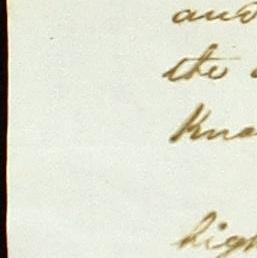 and
the
Kno
high